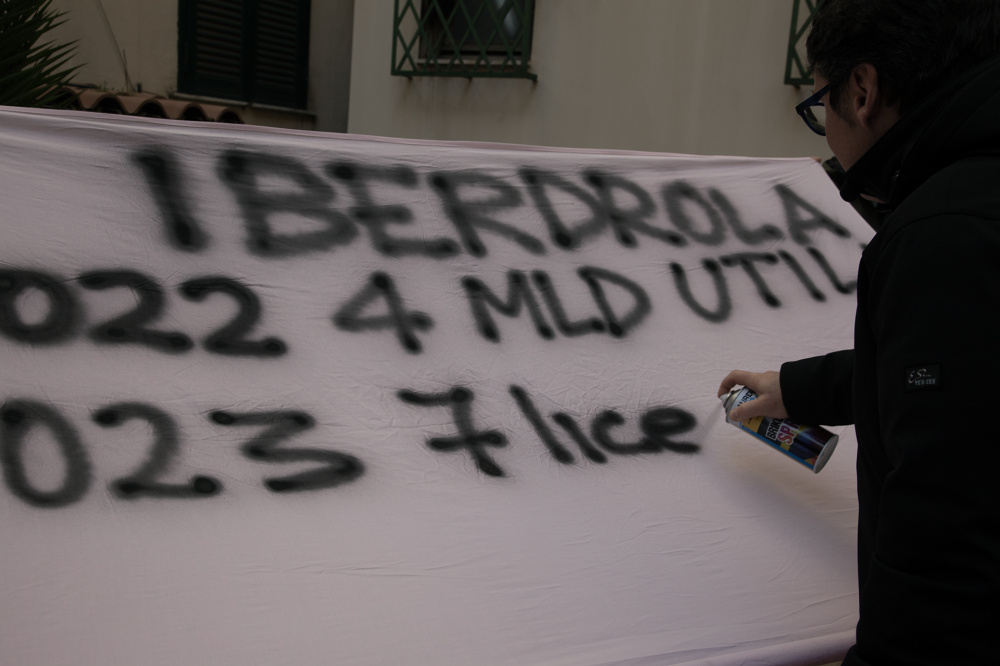 IBERDROLA
022 4 MLD UTIL
023 7 lice